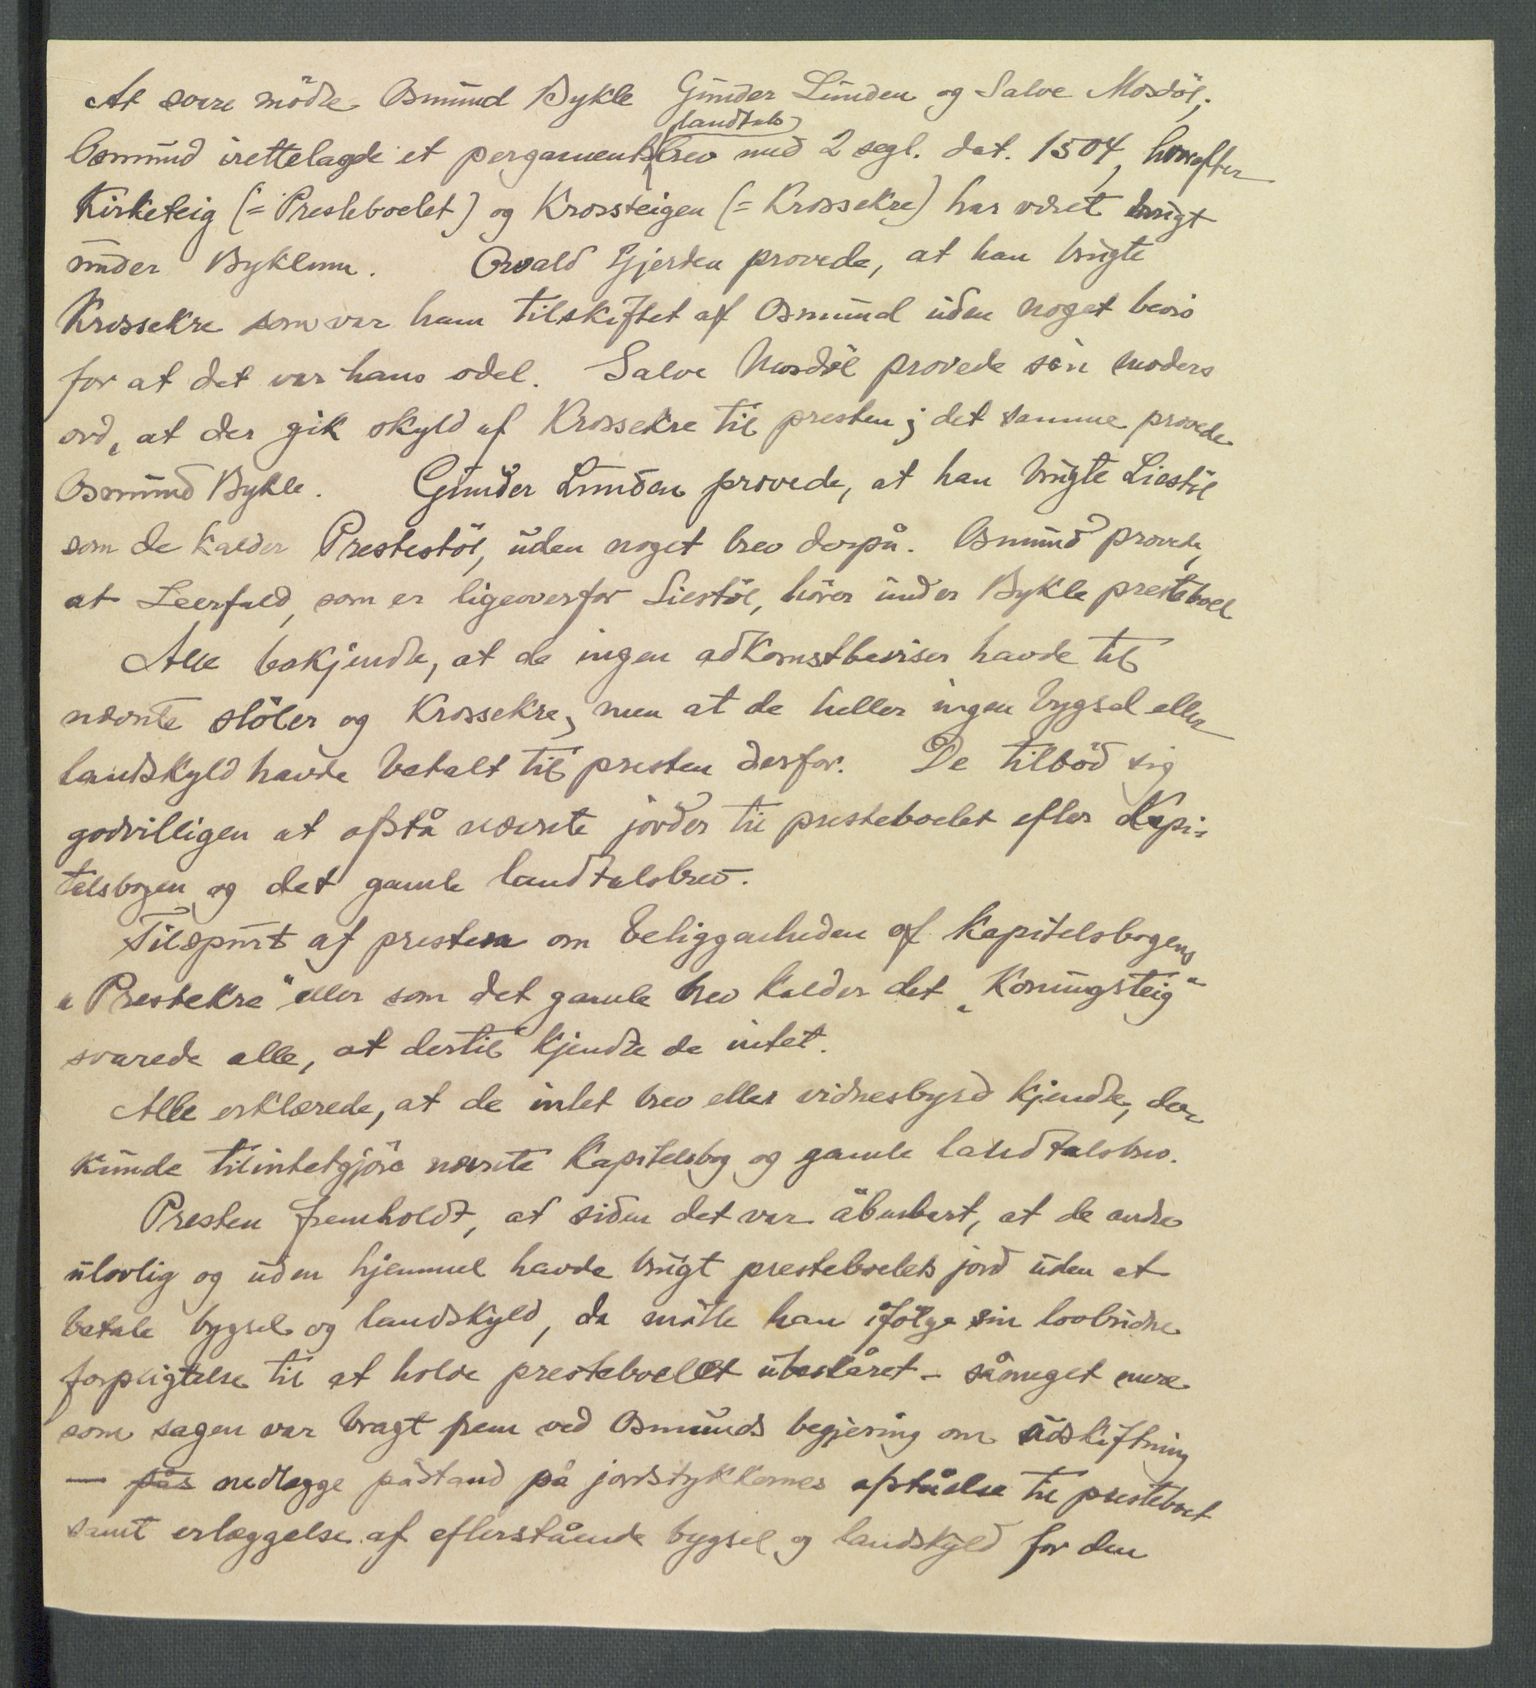 At svare mödte Osmund Bykle Gunder Lunden og Salve Mosdöl;
landtals
Osmund irettelagde et pergamentsbrev med 2 segl. dat. 1504, hvorefter
Kirketeig (= Presteboelet) og Krossteigen (= Krossekre) har været brugt
under Byklum. Osvald Gjerden provede, at han brugte
Krossekre som var ham tilskiftet af Osmund uden noget bevis
for at det var hans odel. Salve Mosdöl provede sin moders
ord, at der gik skyld af Krossekre til presten; det samme provede
Osmund Bykle. Gunder Lunden provede, at han brugte Liestöl
som de kalder Prestestöl, uden noget brev derpå. Osmund provede,
at Leerfald, som er ligeoverfor Liestöl, hörer under Bykle presteboel
Alle bekjendte, at de ingen adkomstbeviser havde til
nævnte stöler og Krossekre, men at de heller ingen bygsel eller
landskyld havde betalt til presten derfor. De tilböd sig
godvilligen at afstå nævnte jorder til presteboelet efter Kapi-
telsbogen og det gamle landtalsbrev.
Tilspurt af presten om beliggenheden af Kapitelsbogens
"Prestekre" eller som det gamle brev kalder det "Koningsteig"
svarede alle, at dertil kjendte de intet.
Alle erklærede, at de intet brev eller vidnesbyrd kjendte, der
kunde tilintetgjöre nævnte Kapitelsbog og gamle landtalsbrev.
Presten fremholdt, at siden det var åbenbart, at de andre
ulovlig og uden hjemmel havde brugt presteboelets jord uden at
betale bygsel og landskyld, da måtte han ifölge sin lovbudne
forpligtelse til at holde presteboelet ubeskåret - såmeget mere
som sagen var bragt frem ved Osmunds begjering om udskiftning
— på nedlægge påstand på jordstykkernes afståelse til presteboelet
samt erlæggelse af efterstående bygsel og landskyld for den